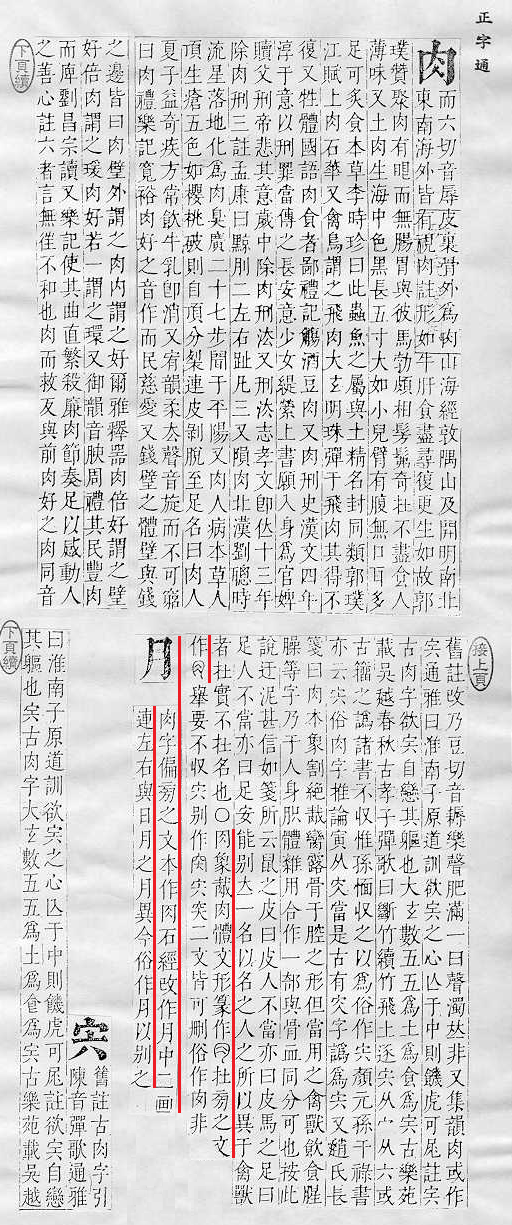 正字通
肉
而六切音辱皮裹骨外爲肉山海經敦隅山及開明南北
東南海外皆有視肉註形如牛肝食盡尋復更生如故郭
璞贊聚肉有眼而無腸胃與彼馬勃頗相髣髴奇在不盡食人
薄味又土肉生海中色黑長五寸大如小兒臂有腹無口耳多
足可炙食本草李時珍曰此蟲魚之屬與土精名封同類郭璞
江賦土肉石華又禽鳥謂之飛肉大𤣥明珠彈于飛肉其得不
復又牲體國語肉食者鄙禮記觴酒豆肉又肉刑史漢文四年
淳于意以刑罪當傳之長安意少女緹縈上書願入身爲官婢
贖父刑帝悲其意歲中除肉刑法又刑法志孝文卽位十三年
除肉刑三註孟康曰黥刖二左右趾凡三又隕肉北漢劉聰時
流星落地化爲肉臭廣二十七步間于平陽又肉人病本草人
頂生瘡五色如櫻桃破則自頂分裂連皮剝脫至足名曰肉人
夏子益奇疾方常飲牛乳卽消又宥韻柔去聲音旋而不可窮
曰肉禮樂記寬裕肉好之音作而民慈愛又錢璧之體璧與錢
之邊皆曰肉璧外謂之肉內謂之好爾雅釋器肉倍好謂之璧
好倍肉謂之瑗肉好若一謂之環又御韻音腴周禮其民豐肉
而庳劉昌宗讀又樂記使其曲直繁殺廉肉節奏足以感動人
之善心註六者言無往不和也肉而救反與前肉好之肉同音
下頁續
接上頁
舊註改乃豆切音耨樂聲肥滿一曰聲濁𠀤非又集韻肉或作
宍通雅曰淮南子原道訓欲宍之心亾于中則饑虎可尾註宍
古肉字欲宍自戀其軀也大𤣥數五五爲土爲食爲宍古樂苑
載吳越春秋古孝子彈歌曰斷竹續竹飛土逐宍从宀从六或
古籀之譌諸書不收惟孫愐收之以爲俗作宍顏元孫干祿書
亦云宍俗肉字推論寅从宍當是古有宍字譌爲宍又趙氏長
箋曰肉本象割絕胾臠露骨于腔之形但當用之禽獸飲食腥
臊等字乃于人身胑體雜用合作一部與骨血同分可也按此
說迂泥甚信如箋所云鼠之皮曰皮人不當亦曰皮馬之足曰
足人不當亦曰足安能别大一名以名之人之所以異于禽獸
者在實不在名也○肉象胾肉體文形篆作在㫄之文
作舉要不收宍别作宍突二文皆可刪俗作肉非
月
肉字偏㫄之文本作肉石經改作月中二画
連左右與日月之月異今俗作月以别之
宍
舊註古肉字引
陳音彈歌通雅
曰淮南子原道訓欲宍之心亾于中則饑虎可尾註欲宍自戀
其軀也宍古肉字大𤣥數五五爲土爲食爲宍古樂苑載吳越
下頁續